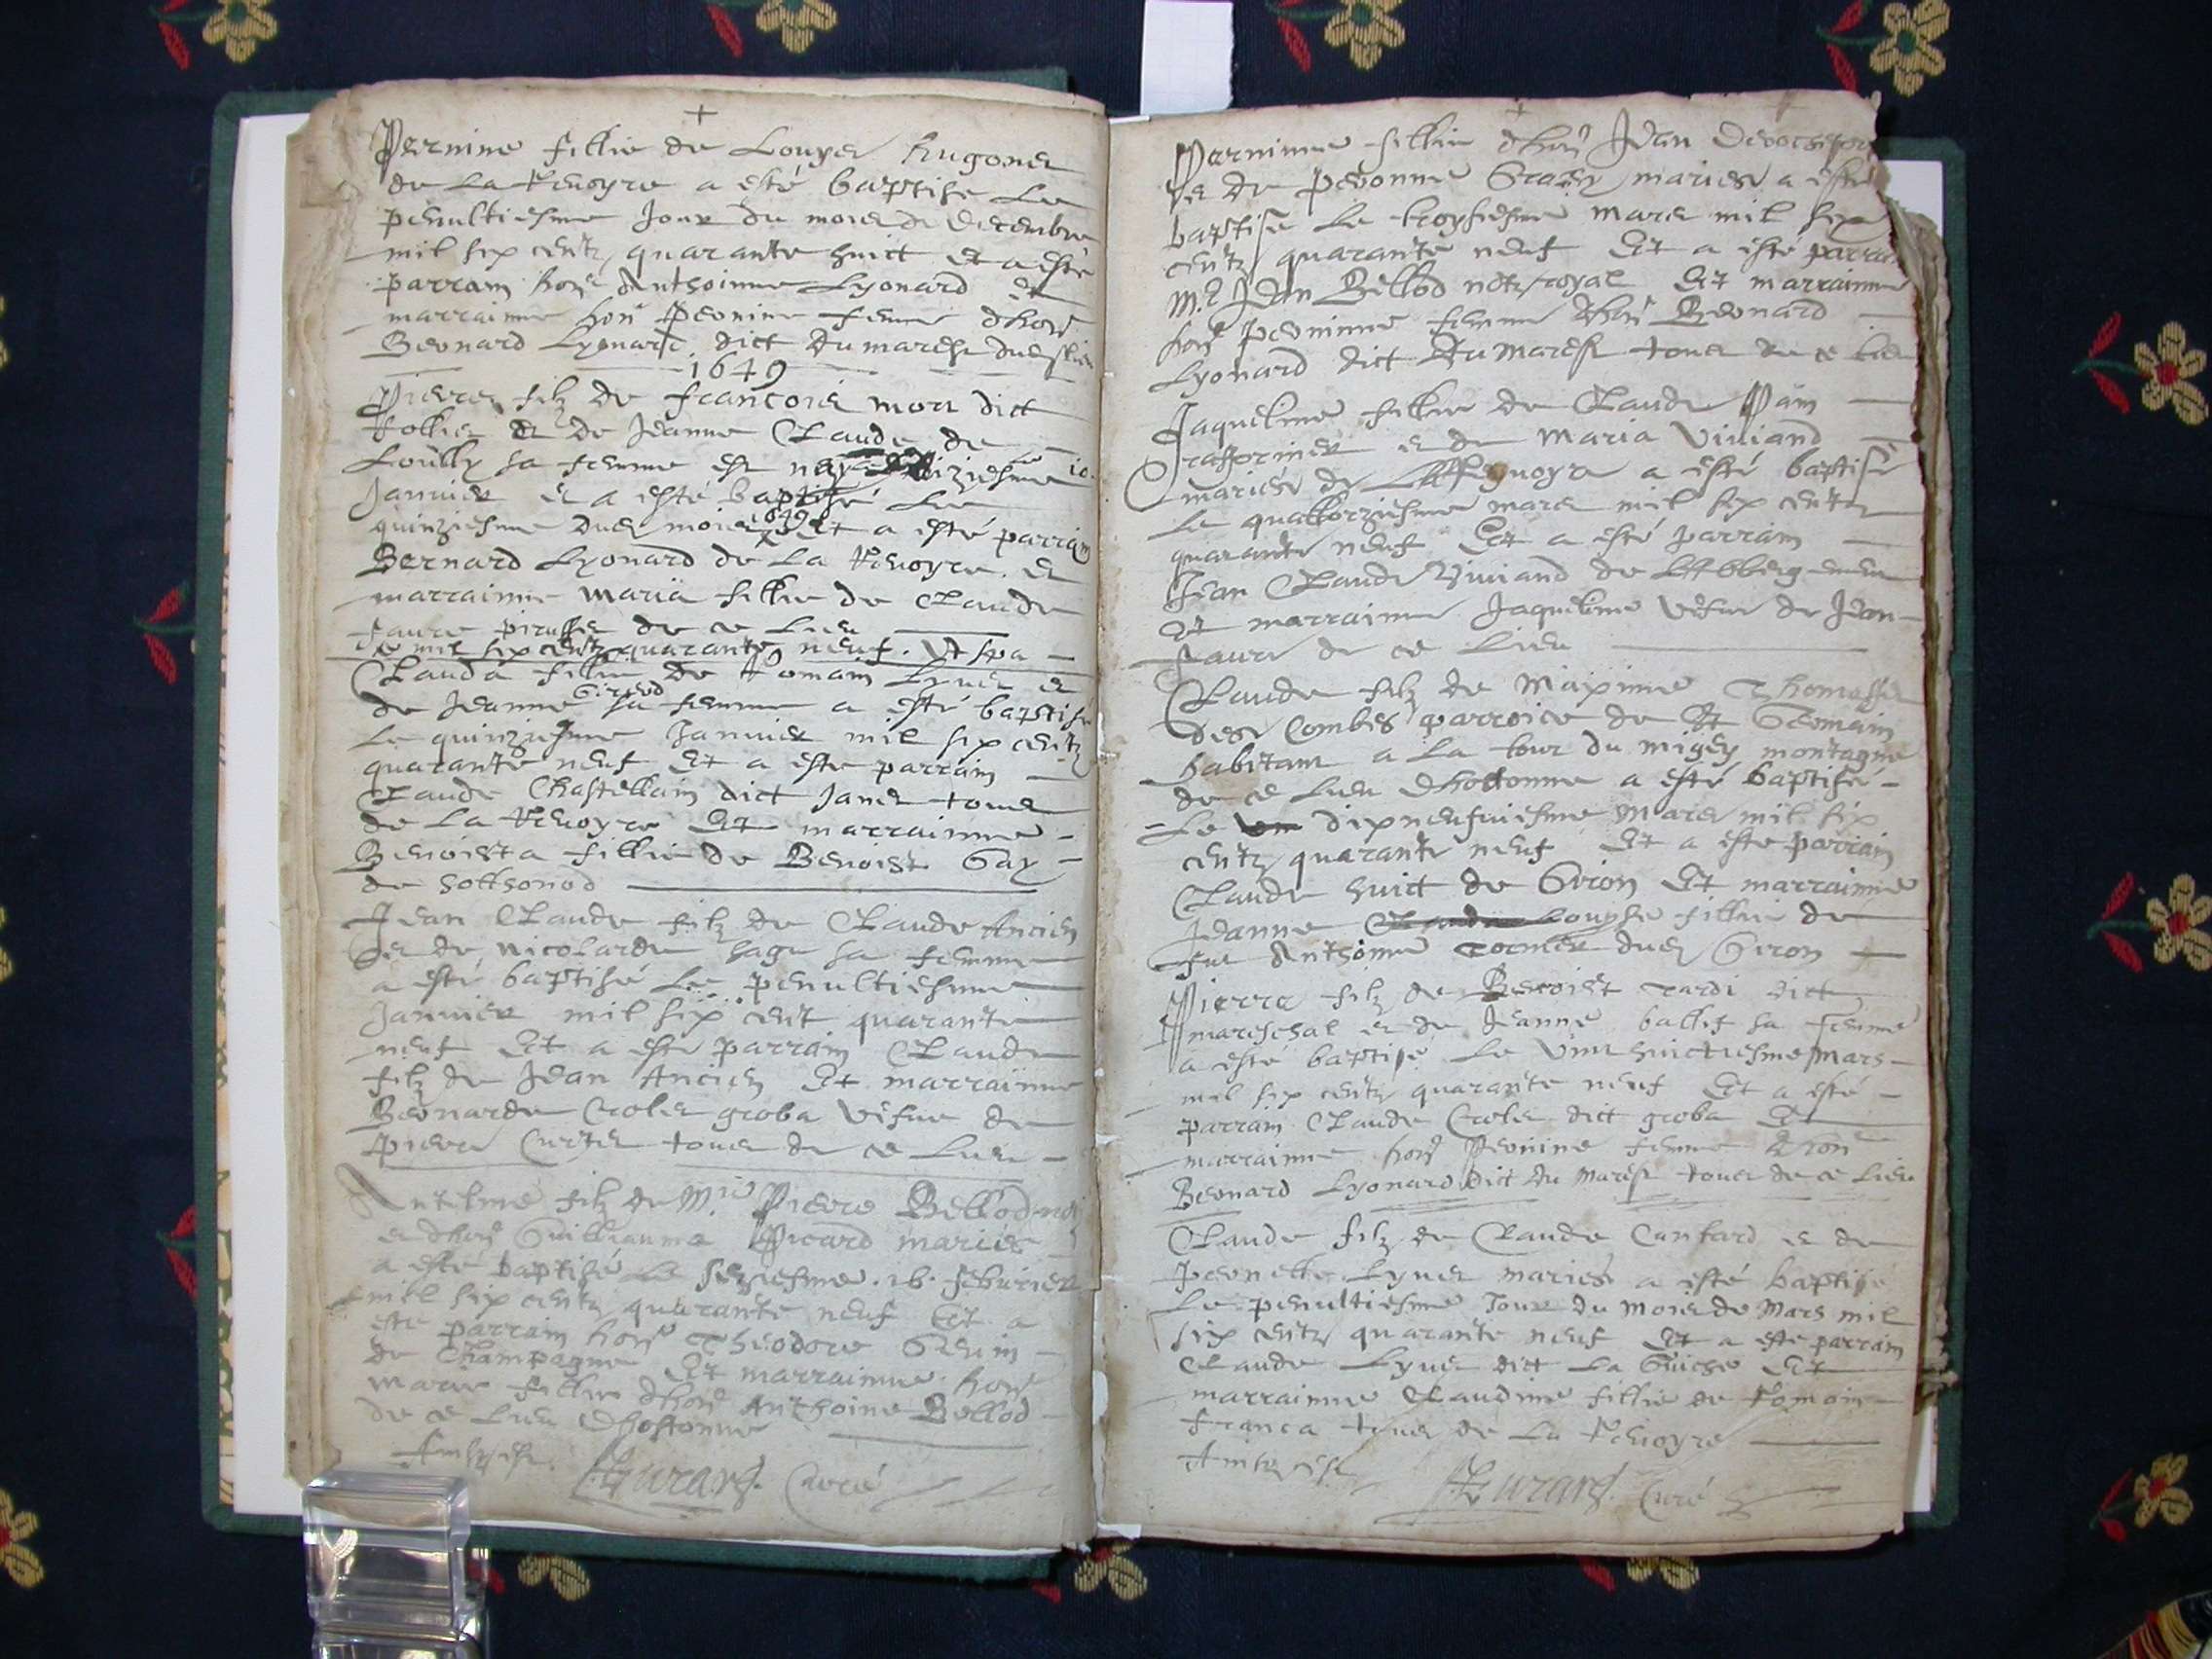 Pernine fillie de Louys Hugonet
de La Revoyre a esté baptise Le
penultiesme Jour du mois de Decembre
mil six centz quarante huict et a esté
parrain hon. Anthoinne Lyonard Et
marrainne hon. Pernine femme d'hon.
Bernard Lyonard dict du marest
1649
Pierre filz de François mon dict
et de Jeanne Claude de
sa femme est nay Le diziesme 10.
Janvier et a esté baptisé Le
quinziesme dud. mois 1649 Et a esté parrain
Bernard Lyonard de La Revoyre. et
marrainne Maria fillie de Claude
de ce Lieu
de mil six centz quarante neuf.
Clauda fillie de Romain Lyvet et
de Jeanne Girod sa femme a esté baptise
Le quinziesme Janvier mil six centz
quarante neuf Et a esté parrain
Claude Chastellain dict Janet tous
de La Revoyre Et marrainne
Benoista fillie de Benoist Gay
de Sothonod
Jean Claude filz de Claude Ancien
et de Nicolarde sa femme
a esté baptisé Le penultiesme
Janvier mil six cent quarante
neuf Et a esté parrain Claude
filz de Jean Ancien Et marrainne
Bernarde Crolet groba vefve de
Pierre Curtet tous de ce Lieu
Antelme filz de M. Pierre Bellod
et d'hon. Guilliauma Picard mariés
a esté baptizé Le seziesme. 16. febvrier
mil six centz quarante neuf Et a
esté parrain hon. Theodore
de Champagne Et marrainne. hon.
Marie fillie d'hon. Anthoine Bellod
de ce Lieu d'hostonne
Curé
Perninne fillie d'hon. Jean
et de Pernonne mariés a esté
baptise Le troysiesme mars mil six
centz quarante neuf Et a esté parrain
M. Jean Bellod royal Et marrainne
hon. Perninne femme d'hon. Bernard
Lyonard dict du marest tous de ce lieu
Jaqueline fillie de Claude Pain
et de Maria Viviand
mariés de a esté baptisé
Le quattorziesme mars mil six centz
quarante neuf Et a esté parrain
Jean Claude Viviand de
Et marrainne Jaqueline vefve de Jean
Favre de ce Lieu
Claude filz de Maxime Thomasset
des Combes parroice de St Germain
habitant a La tour du migey montagne
de ce Lieu d'hostonne a esté baptisé
Le dixneufviesme mars mil six
centz quarante neuf Et a esté parrain
Claude huict de Giron Et marrainne
Jeanne Louyse fillie de
feu Anthoinne dud. Giron
Pierre filz de Benoist Tardi dict
mareschal et de Jeanne ballif sa femme
a esté baptisé Le vint huictiesme mars
mil six centz quarante neuf Et a esté
parrain Claude Crolet dict groba Et
marrainne hon. Pernine femme d'hon.
Bernard Lyonard dict du marest tous de ce Lieu
Claude filz de Claude et de
Pernette Lyvet mariés a esté baptisé
Le penultiesme Jour du mois de Mars mil
six centz quarante neuf Et a esté parrain
Claude Lyvet dict La Guiche Et
marrainne Claudine fillie de Romain
Franca tous de La Revoyre
Curé